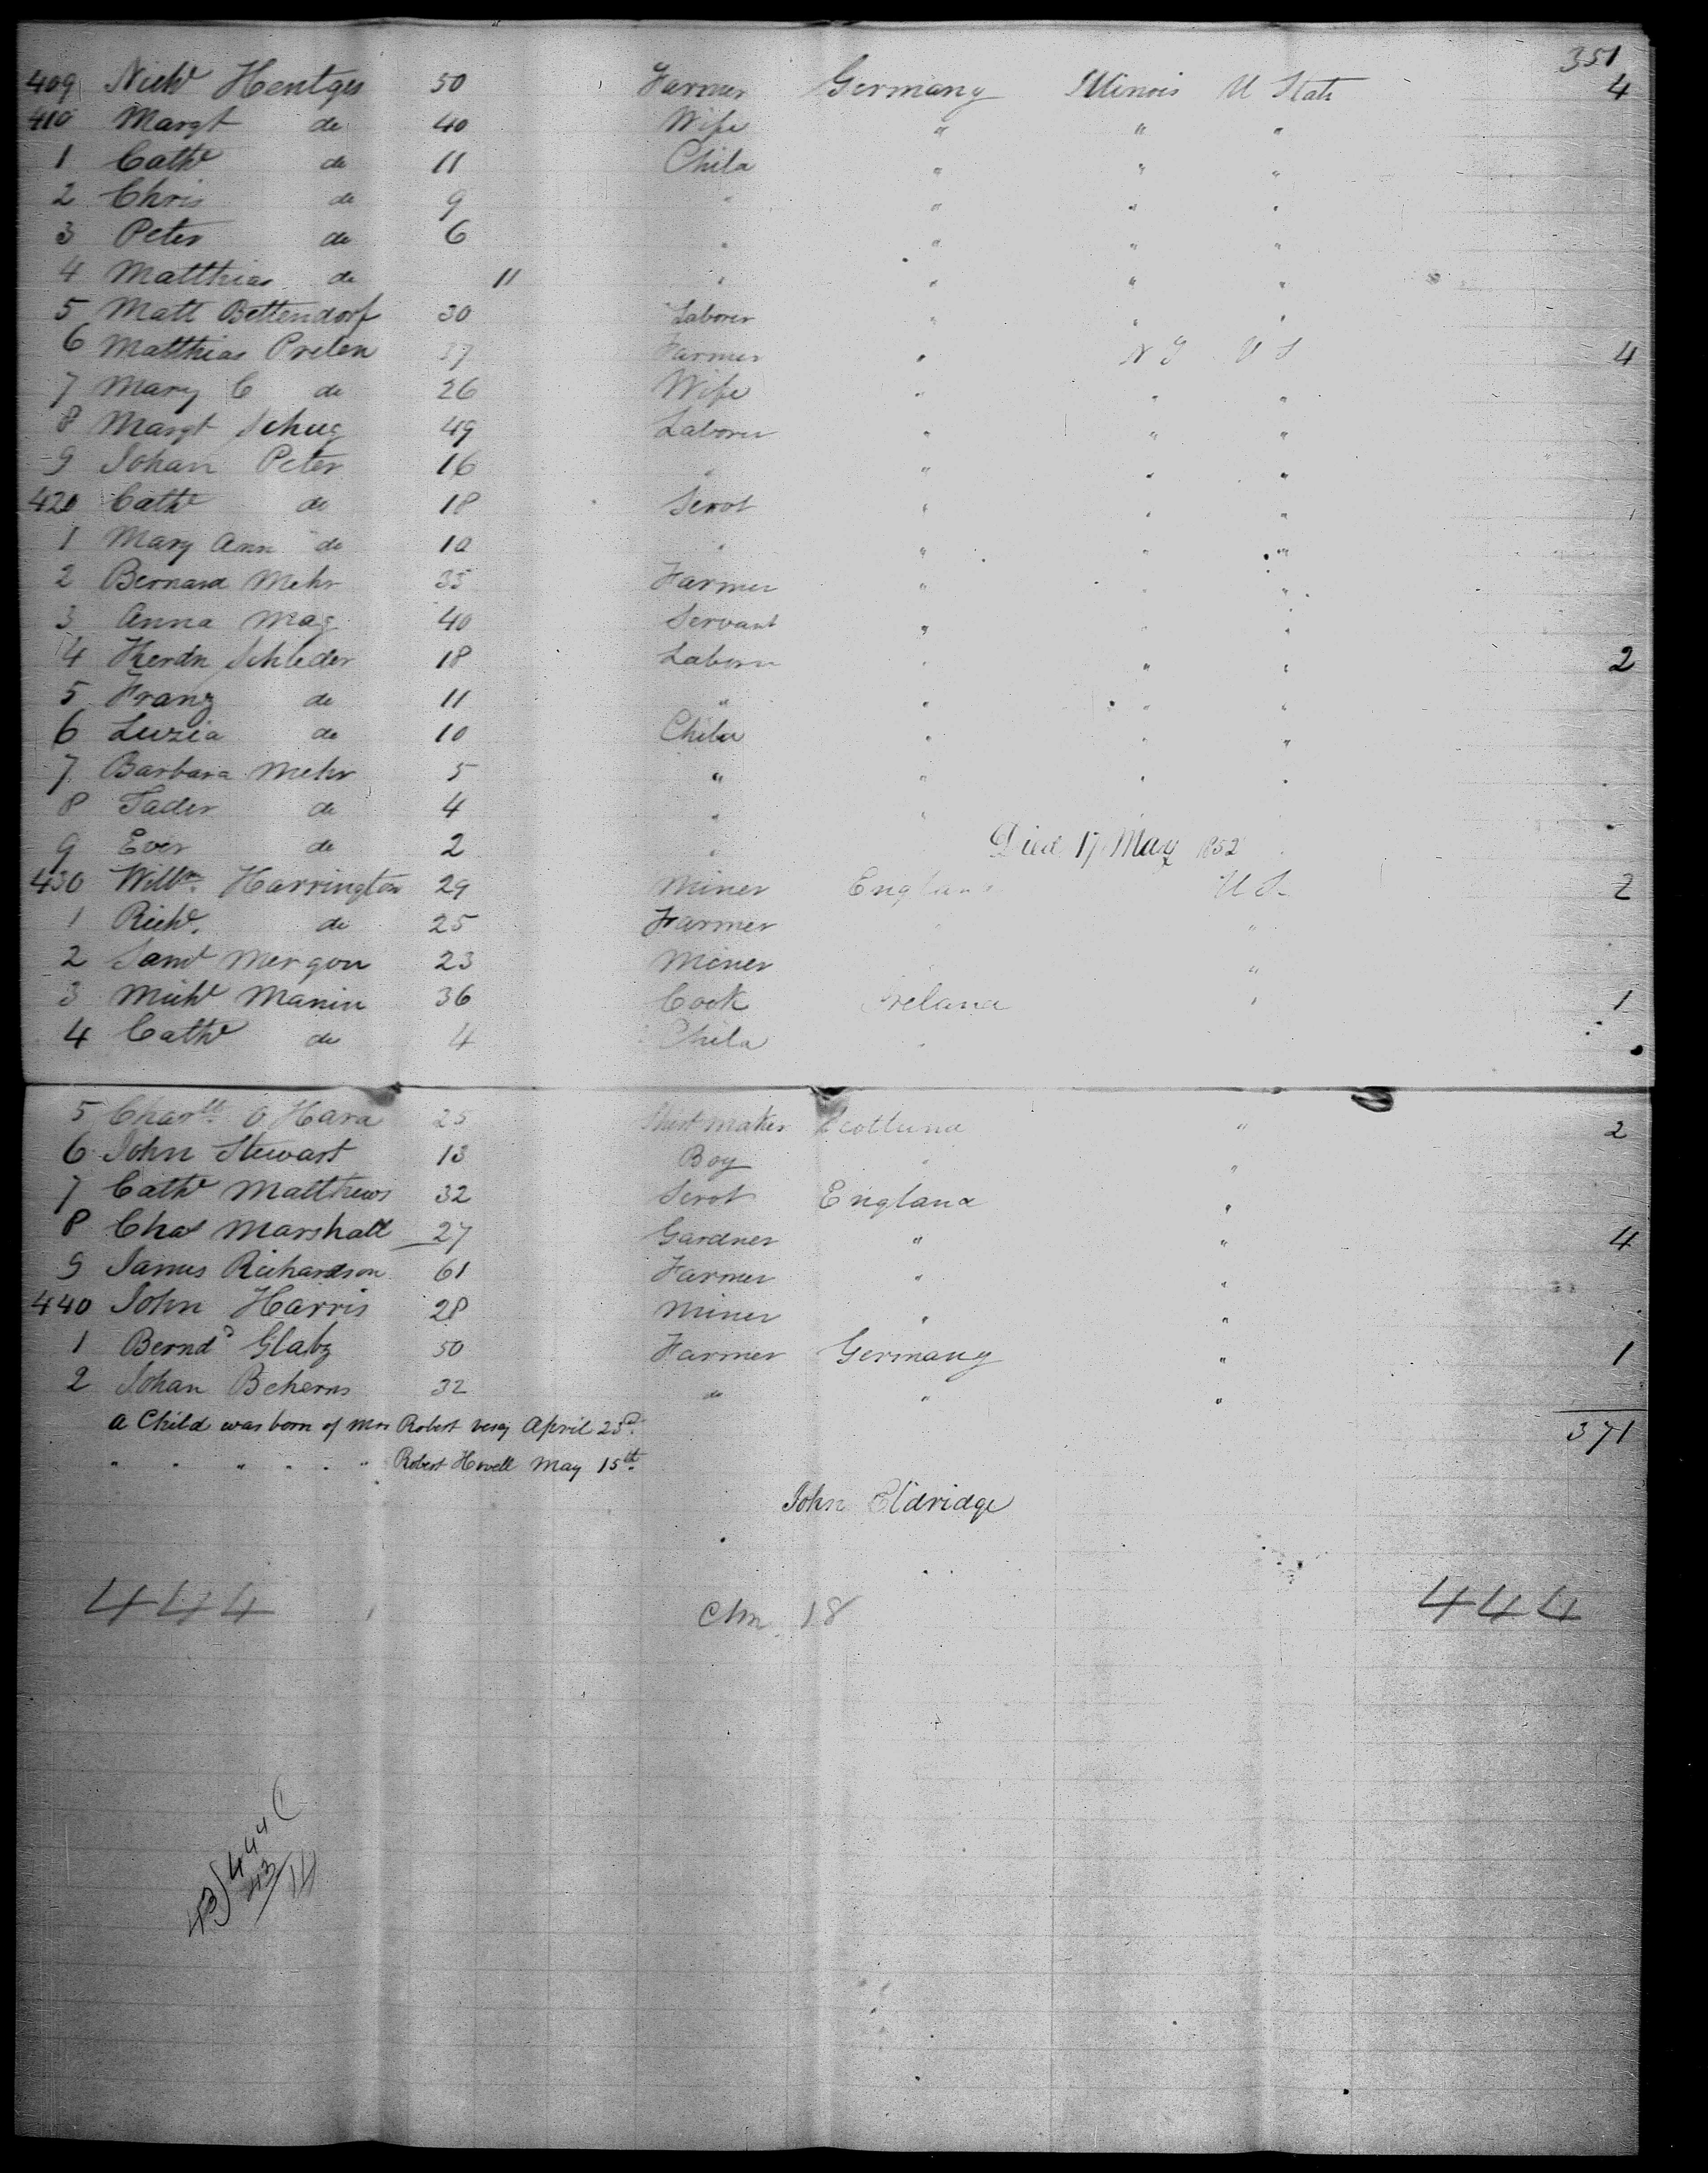 351
409 Nichs Hentges 50 Farmer Germany Illinois U State 4
410 Margt do 40 Wife " " "
1 Cathe do 11 Child " " "
2 Chris do 9 " " " "
3 Peter do 6 " " " "
4 Matthias do 11 " " " "
5 Matt Bettendorf 30 Laborer " " "
6 Matthias Prelen 37 Farmer " N Y U S 4
7 Mary C do 26 Wife " " "
8 Margt Schug 49 Laborer " " "
9 Johan Peter 16 " " " "
420 Cathe do 18 Servt " " "
1 Mary Ann do 10 " " " "
2 Bernard Mehr 35 Farmer " " "
3 Anna Mag 40 Servant " " "
4 Schleder 18 Laborer " " " 2
5 Franz do 11 " " " "
6 Luzia do 10 Child " " "
7 Barbara Mehr 5 " " " "
8 do 4 " "
9 Ever do 2 " Died 17 May 1852
430 Willm Harrington 29 Miner England U S 2
1 Richd do 25 Farmer "
2 Saml 23 Miner "
3 Michl Manin 36 Cook Ireland " 1
4 Cathe do 4 Child "
5 Charltt O Hara 25 maker Scotland " 2
6 John Stewart 13 Boy " "
7 Cathe Matthews 32 Servt England "
8 Chas Marshall 27 Gardner " " 4
9 James Richardson 61 Farmer " "
440 John Harris 28 Miner " "
1 Bernd Glabz 50 Farmer Germany " 1
2 Johan Beherns 32 do " "
a Child was born of Mrs Robert April 23d 371
" " " " " " Robert Howell May 15th
John Eldridge
444 18 444
43) 444 (
43
14